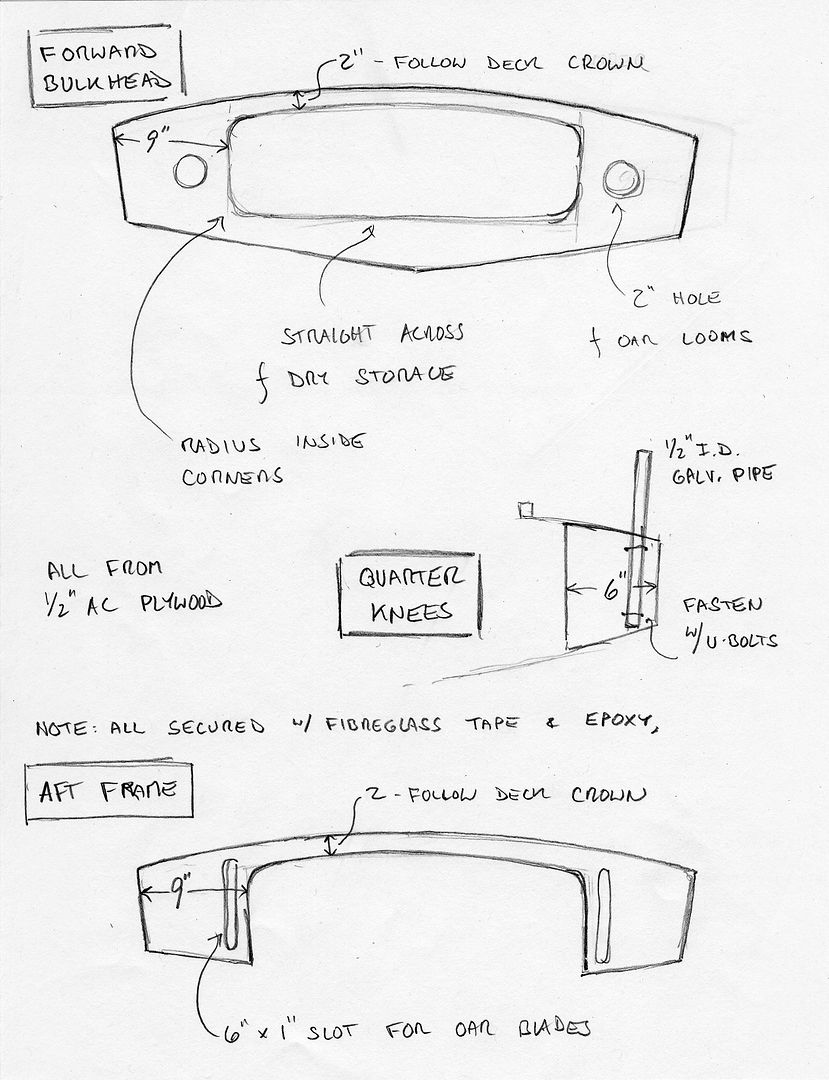 FORWARD
BULKHEAD
2" - FOLLOW DECK CROWN
9"
2" HOLE
f OAR LOOMS
STRAIGHT ACROSS
f DRY STORAGE
RADIUS INSIDE
CORNERS
1/2" I.D.
GALV. PIPE
ALL FROM
1/2" AC PLYWOOD
QUARTER
KNEES
6"
FASTEN
W/ U-BOLTS
NOTE: ALL SECURED W/ FIBREGLASS TAPE & EPOXY.
AFT FRAME
2 - FOLLOW DECK CROWN
9"
6" x 1" SLOT FOR OAR BLADES